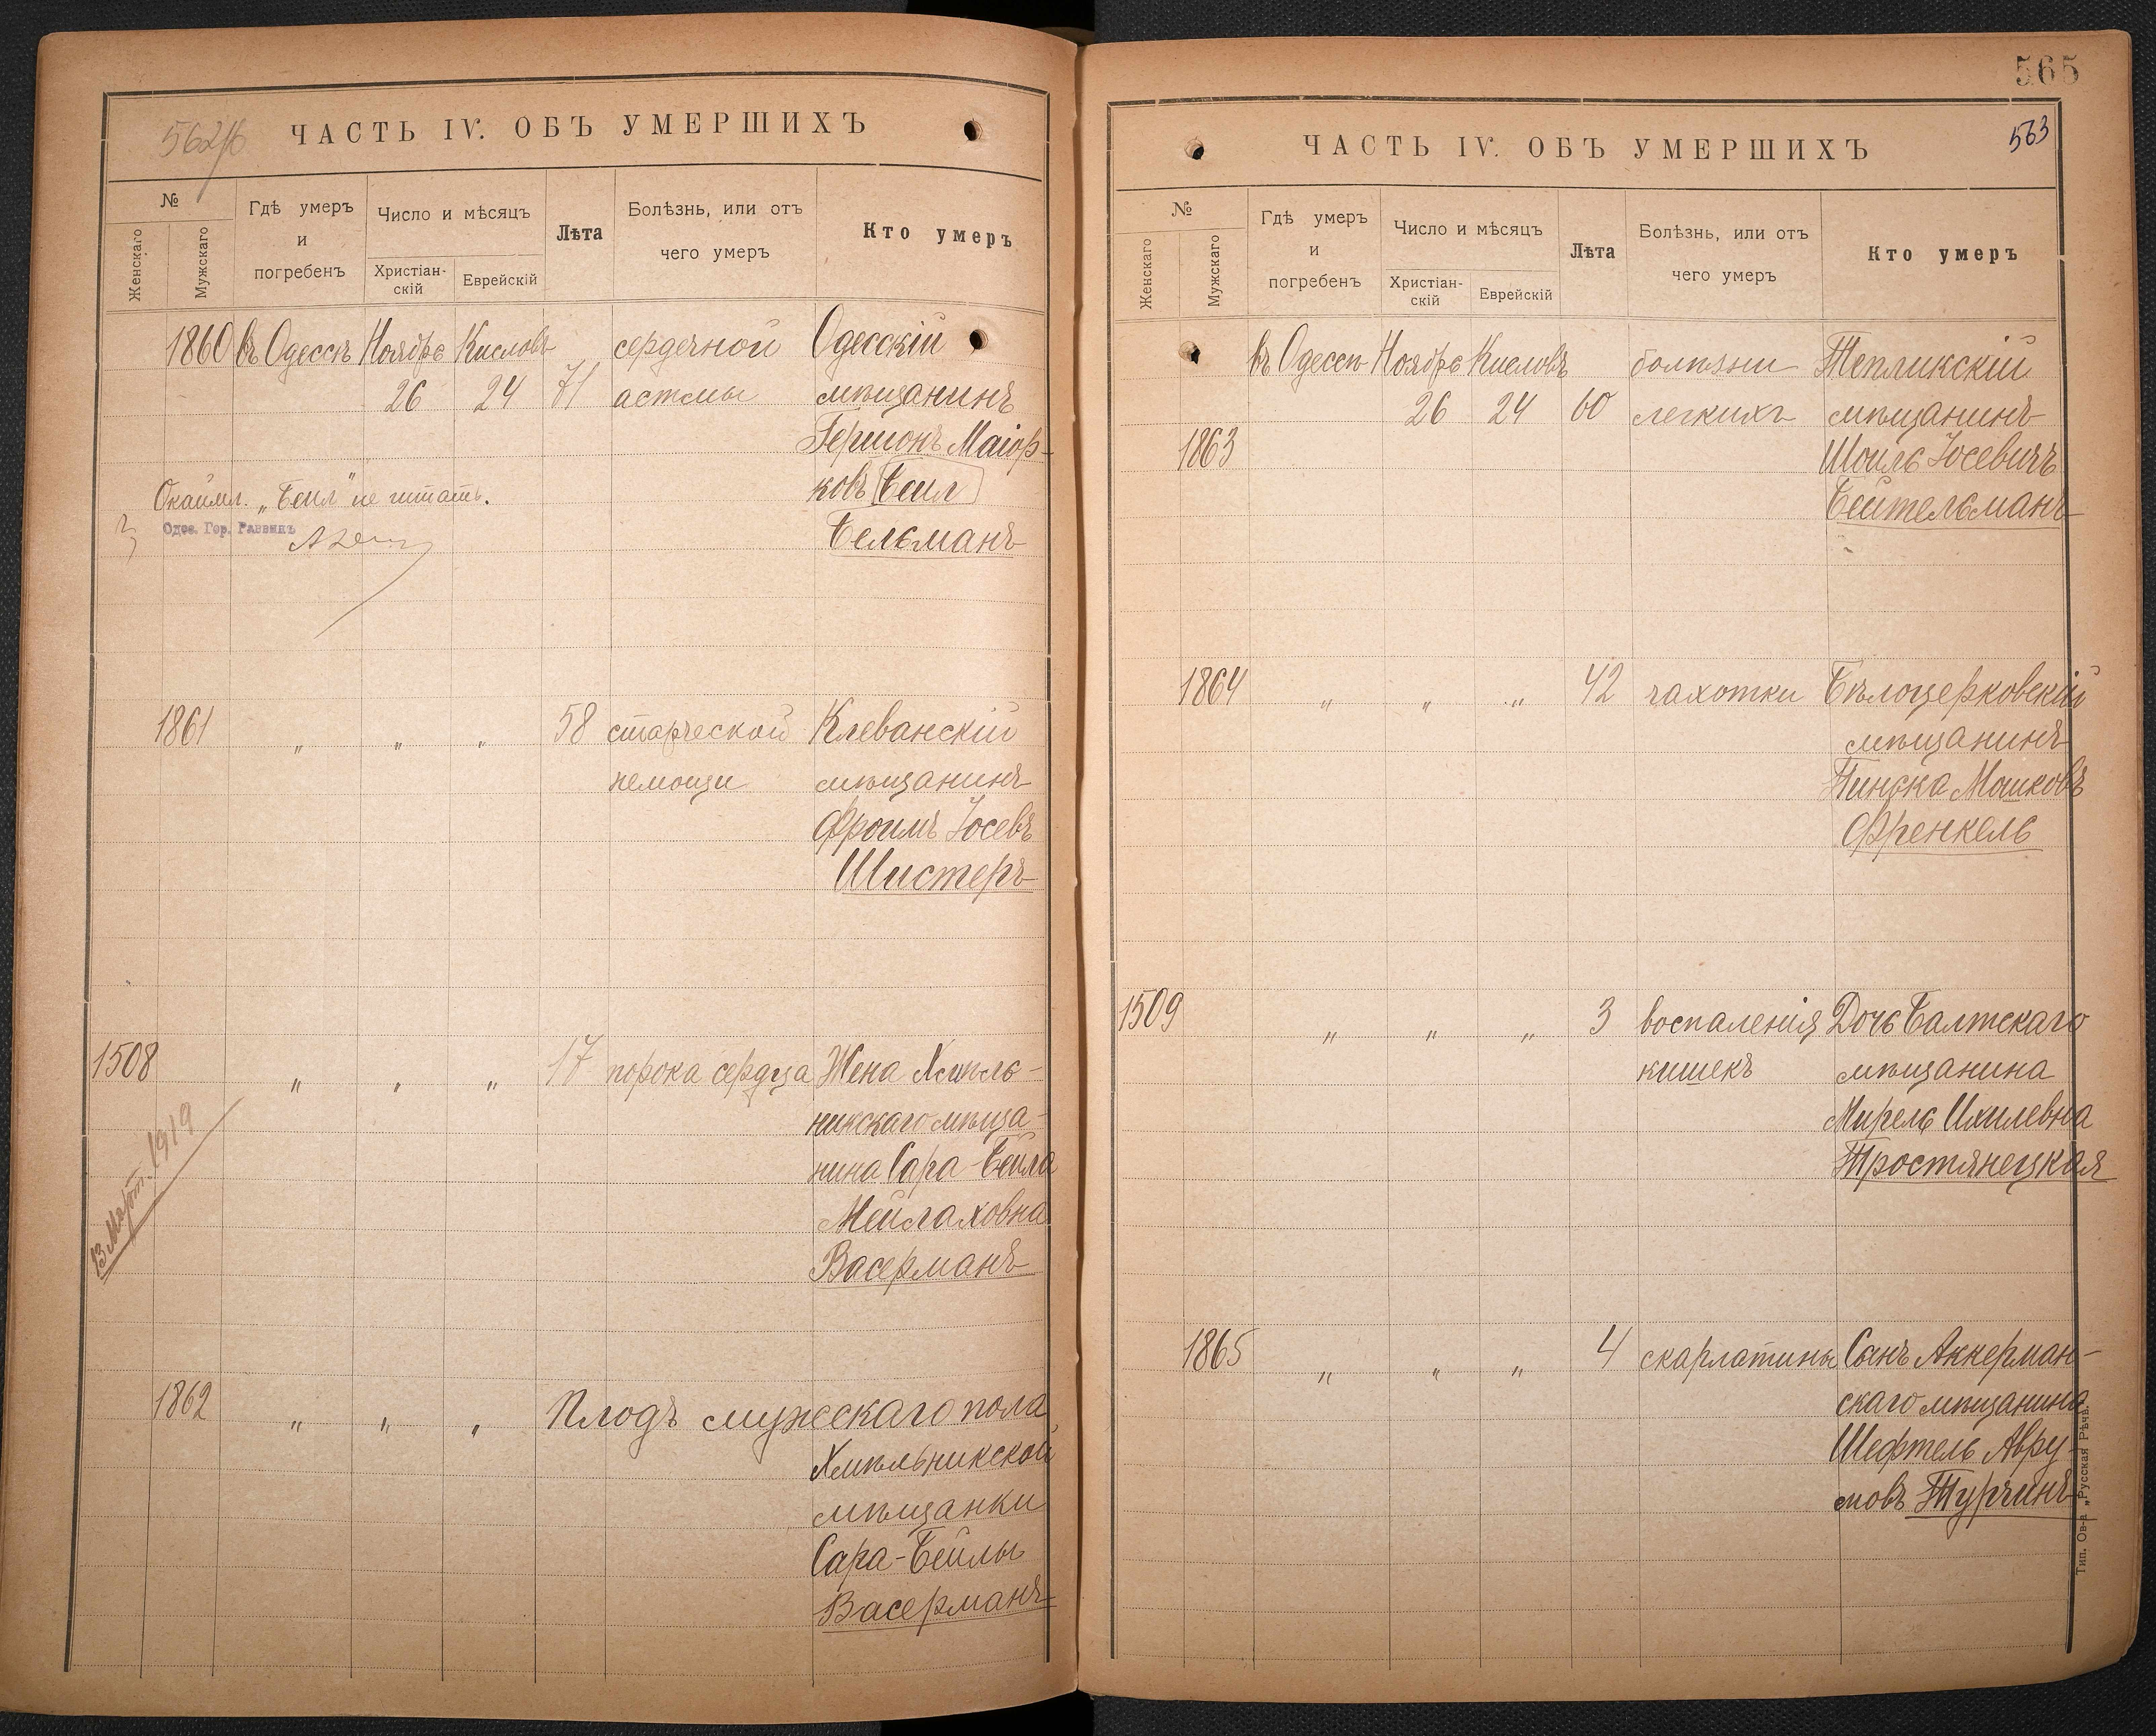 562
ЧАСТЬ IV. ОБЪ УМЕРШИХЪ
№
Женскаго
Мужскаго
Гдѣ умеръ
и
погребенъ
Число и мѣсяцъ
Христіан-
скій
Еврейскій
Лѣта
Болѣзнь, или отъ
чего умеръ
Кто умеръ
1860 въ Одессѣ Ноябрь Кисловъ сердечной Одесскій
26 24 71 астмы мѣщанинъ
Гершонъ Маіор-
ковъ Беил
Бельманъ
Окаймл. „Беил" не читать.
Одес. Гор. Раввинъ
1861 „ „ „ 58 старческой Клеванскій
немощи мѣщанинъ
Фроимъ Іосевъ
Шистеръ
1508 „ „ „ 17 порока сердца Жена Хмѣль-
никскаго мѣща-
нина Сара-Бейла
Мейлаховна
Васерманъ
13 Март. 1919
1862 „ „ „ Плодъ мужескаго пола
Хмѣльникской
мѣщанки
Сара-Бейлы
Васерманъ
565
563
ЧАСТЬ IV. ОБЪ УМЕРШИХЪ
№
Женскаго
Мужскаго
Гдѣ умеръ
и
погребенъ
Число и мѣсяцъ
Христіан-
скій
Еврейскій
Лѣта
Болѣзнь, или отъ
чего умеръ
Кто умеръ
въ Одессѣ Ноябрь Кисловъ болѣзни Тепликскій
26 24 60 легкихъ мѣщанинъ
1863 Шоилъ Іосевичъ
Бейтельманъ
1864 „ „ „ 42 чахотки Бѣлоцерковскій
мѣщанинъ
Пинска Мошковъ
Френкель
1509 „ „ „ 3 воспаленія Дочь Балтскаго
кишекъ мѣщанина
Мирель Ихилевна
Тростянецкая
1865 „ „ „ 4 скарлатины Сынъ Аккерман-
скаго мѣщанина
Шефтель Авру-
мовъ Турчинъ
Тип. Ов-а „Русская Рѣчь."